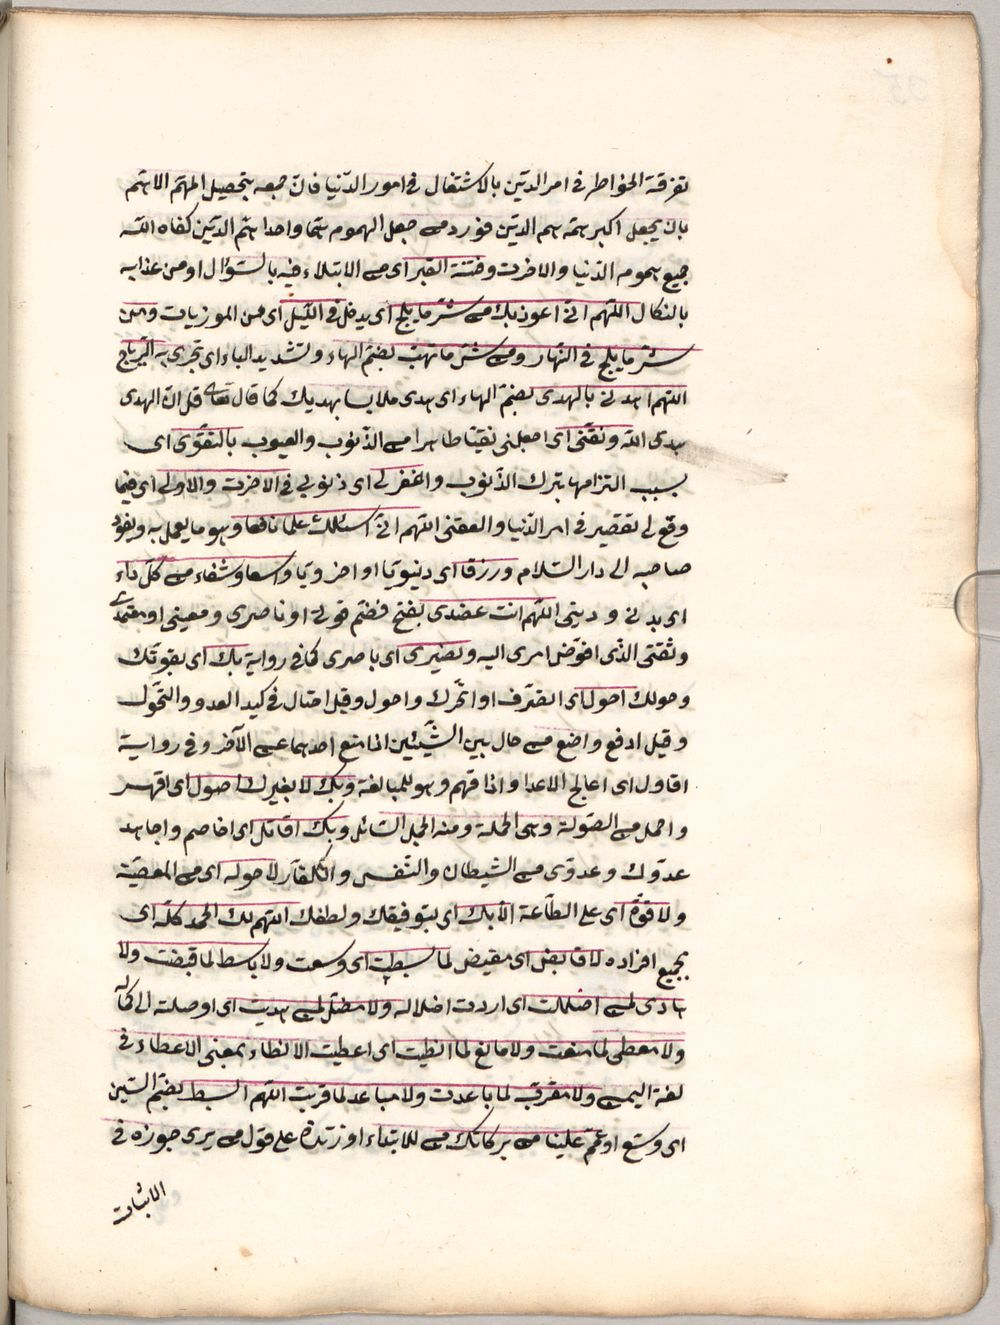 تفرقة الخواطر في امر الدين بالاشتغال في امور الدنيا فان جمعه بتحصيل المهم الاهتم
بان يجعل اكبر همه هم الدين فورد من جعل الهموم هما واحدا هم الدين كفاه الله
جميع هموم الدنيا والاخرت وفتنة القبر اى من الابتلاء فيه بالسؤال او من عذابه
بالنكال اللهم انى اعوذ بك من شر ما يلج اى يدخل فى الليل اى من الموزيات ومن
شر ما يلج فى النهار ومن شر ما تهب بضم الهاء وتشديد الباء اى تجرى به الرياح
اللهم اهدنى بالهدى بضم الهاء اى هدى ملابسا بهديك كما قال تعالى قل ان الهدى
هدى الله ونقنى اى اجعلنى نقيا طاهرا من الذنوب والعيوب بالتقوى اى
بسبب التزامها بترك الذنوب واغفر لى اى ذنوبى فى الاخرت والاولى اى فيما
وقع لى تقصير فى امر الدنيا والعقبى اللهم انى اسئلك علما نافعا وهو ما يعمل به ويقود
صاحبه الى دار السلام ورزقا اى دنيويا او اخرويا واسعا وشفاء من كل داء
اى بدنى ودينى اللهم انت عضدى بفتح فضم قوتى او ناصرى ومعينى او معتمدى
وثقتى الذى افوض امرى اليه ونصيرى اى ناصرى كما فى رواية بك اى بقوتك
وحولك احول اى اتصرف او اتحرك واحول وقيل احتال فى كيد العدو والتحول
وقيل ادفع وامنع من حال بين الشيئين اذا منع احدهما عن الآخر وفى رواية
احاول اى اعالج الاعدا واذا قهم وهو للمبالغة وبك لا بغيرك اصول اى اقهر
واحمل من الصولة وهى الحملة ومنه الجمل الصائل وبك اقاتل اى اخاصم واجاهد
عدوك وعدوى من الشيطان والنفس والكفار لا حول اى من المعصية
ولا قوة اى على الطاعة الا بك اى بتوفيقك ولطفك اللهم لك الحمد كله اى
بجميع افراده لا قابض اى مقيض لما بسطت اى وسعت ولا باسط لما قبضت ولا
هادى لمن اضللت اى اردت اضلاله ولا مضل لمن هديت اى اوصلته الى كماله
ولا معطى لما منعت ولا مانع لما انطيت اى اعطيت الانطاء بمعنى الاعطاء فى
لغة اليمن ولا مقرب لما باعدت ولا مباعد لما قربت اللهم ابسط بضم السين
اى وسع او عمم علينا من بركاتك من للابتداء او زائدة على قول من يرى جوزه فى
الاثبات